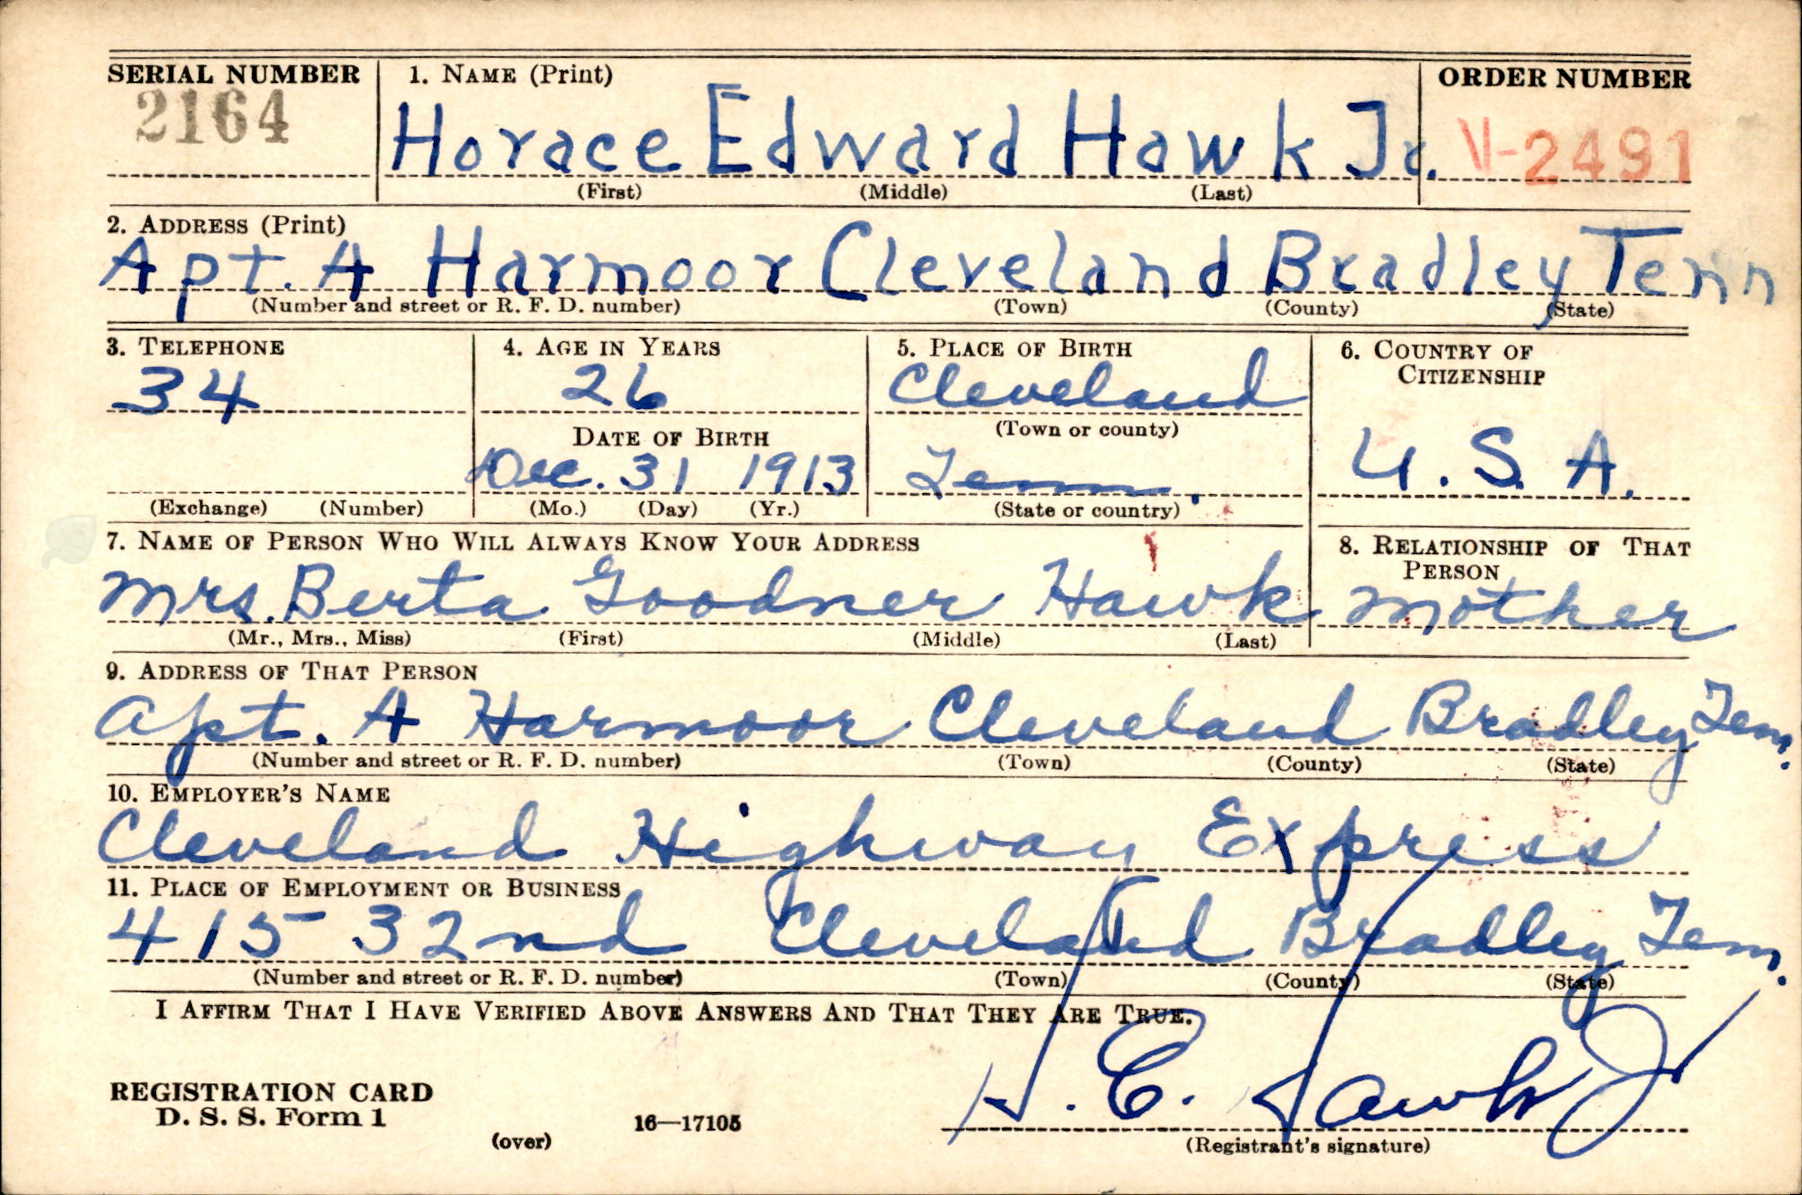 SERIAL NUMBER 1. NAME (Print) ORDER NUMBER
2164 Horace Edward Hawk Jr. V-2491
(First) (Middle) (Last)
2. ADDRESS (Print)
Apt. A Harmoor Cleveland Bradley Tenn
(Number and street or R. F. D. number) (Town) (County) (State)
3. TELEPHONE 4. AGE IN YEARS 5. PLACE OF BIRTH 6. COUNTRY OF CITIZENSHIP
34 26 Cleveland
(Town or county)
DATE OF BIRTH
Dec. 31 1913 Tenn. U.S.A.
(Exchange) (Number) (Mo.) (Day) (Yr.) (State or country)
7. NAME OF PERSON WHO WILL ALWAYS KNOW YOUR ADDRESS 8. RELATIONSHIP OF THAT PERSON
Mrs. Berta Goodner Hawk Mother
(Mr., Mrs., Miss) (First) (Middle) (Last)
9. ADDRESS OF THAT PERSON
Apt. A Harmoor Cleveland Bradley Tenn.
(Number and street or R. F. D. number) (Town) (County) (State)
10. EMPLOYER'S NAME
Cleveland Highway Express
11. PLACE OF EMPLOYMENT OR BUSINESS
415 32nd Cleveland Bradley Tenn.
(Number and street or R. F. D. number) (Town) (County) (State)
I AFFIRM THAT I HAVE VERIFIED ABOVE ANSWERS AND THAT THEY ARE TRUE.
REGISTRATION CARD
D. S. S. Form 1 16—17105 H. E. Hawk Jr
(over) (Registrant's signature)